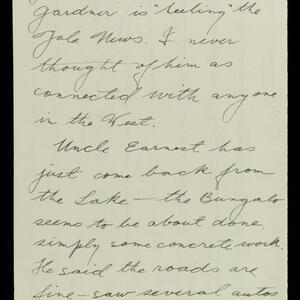 Gardner is "heeling" the
Yale News. I never
thought of him as
connected with anyone
in the West.
Uncle Earnest has
just come back from
the Lake — the Bungalo
seems to be about done,
simply some concrete work.
He said the roads are
fine — saw several autos